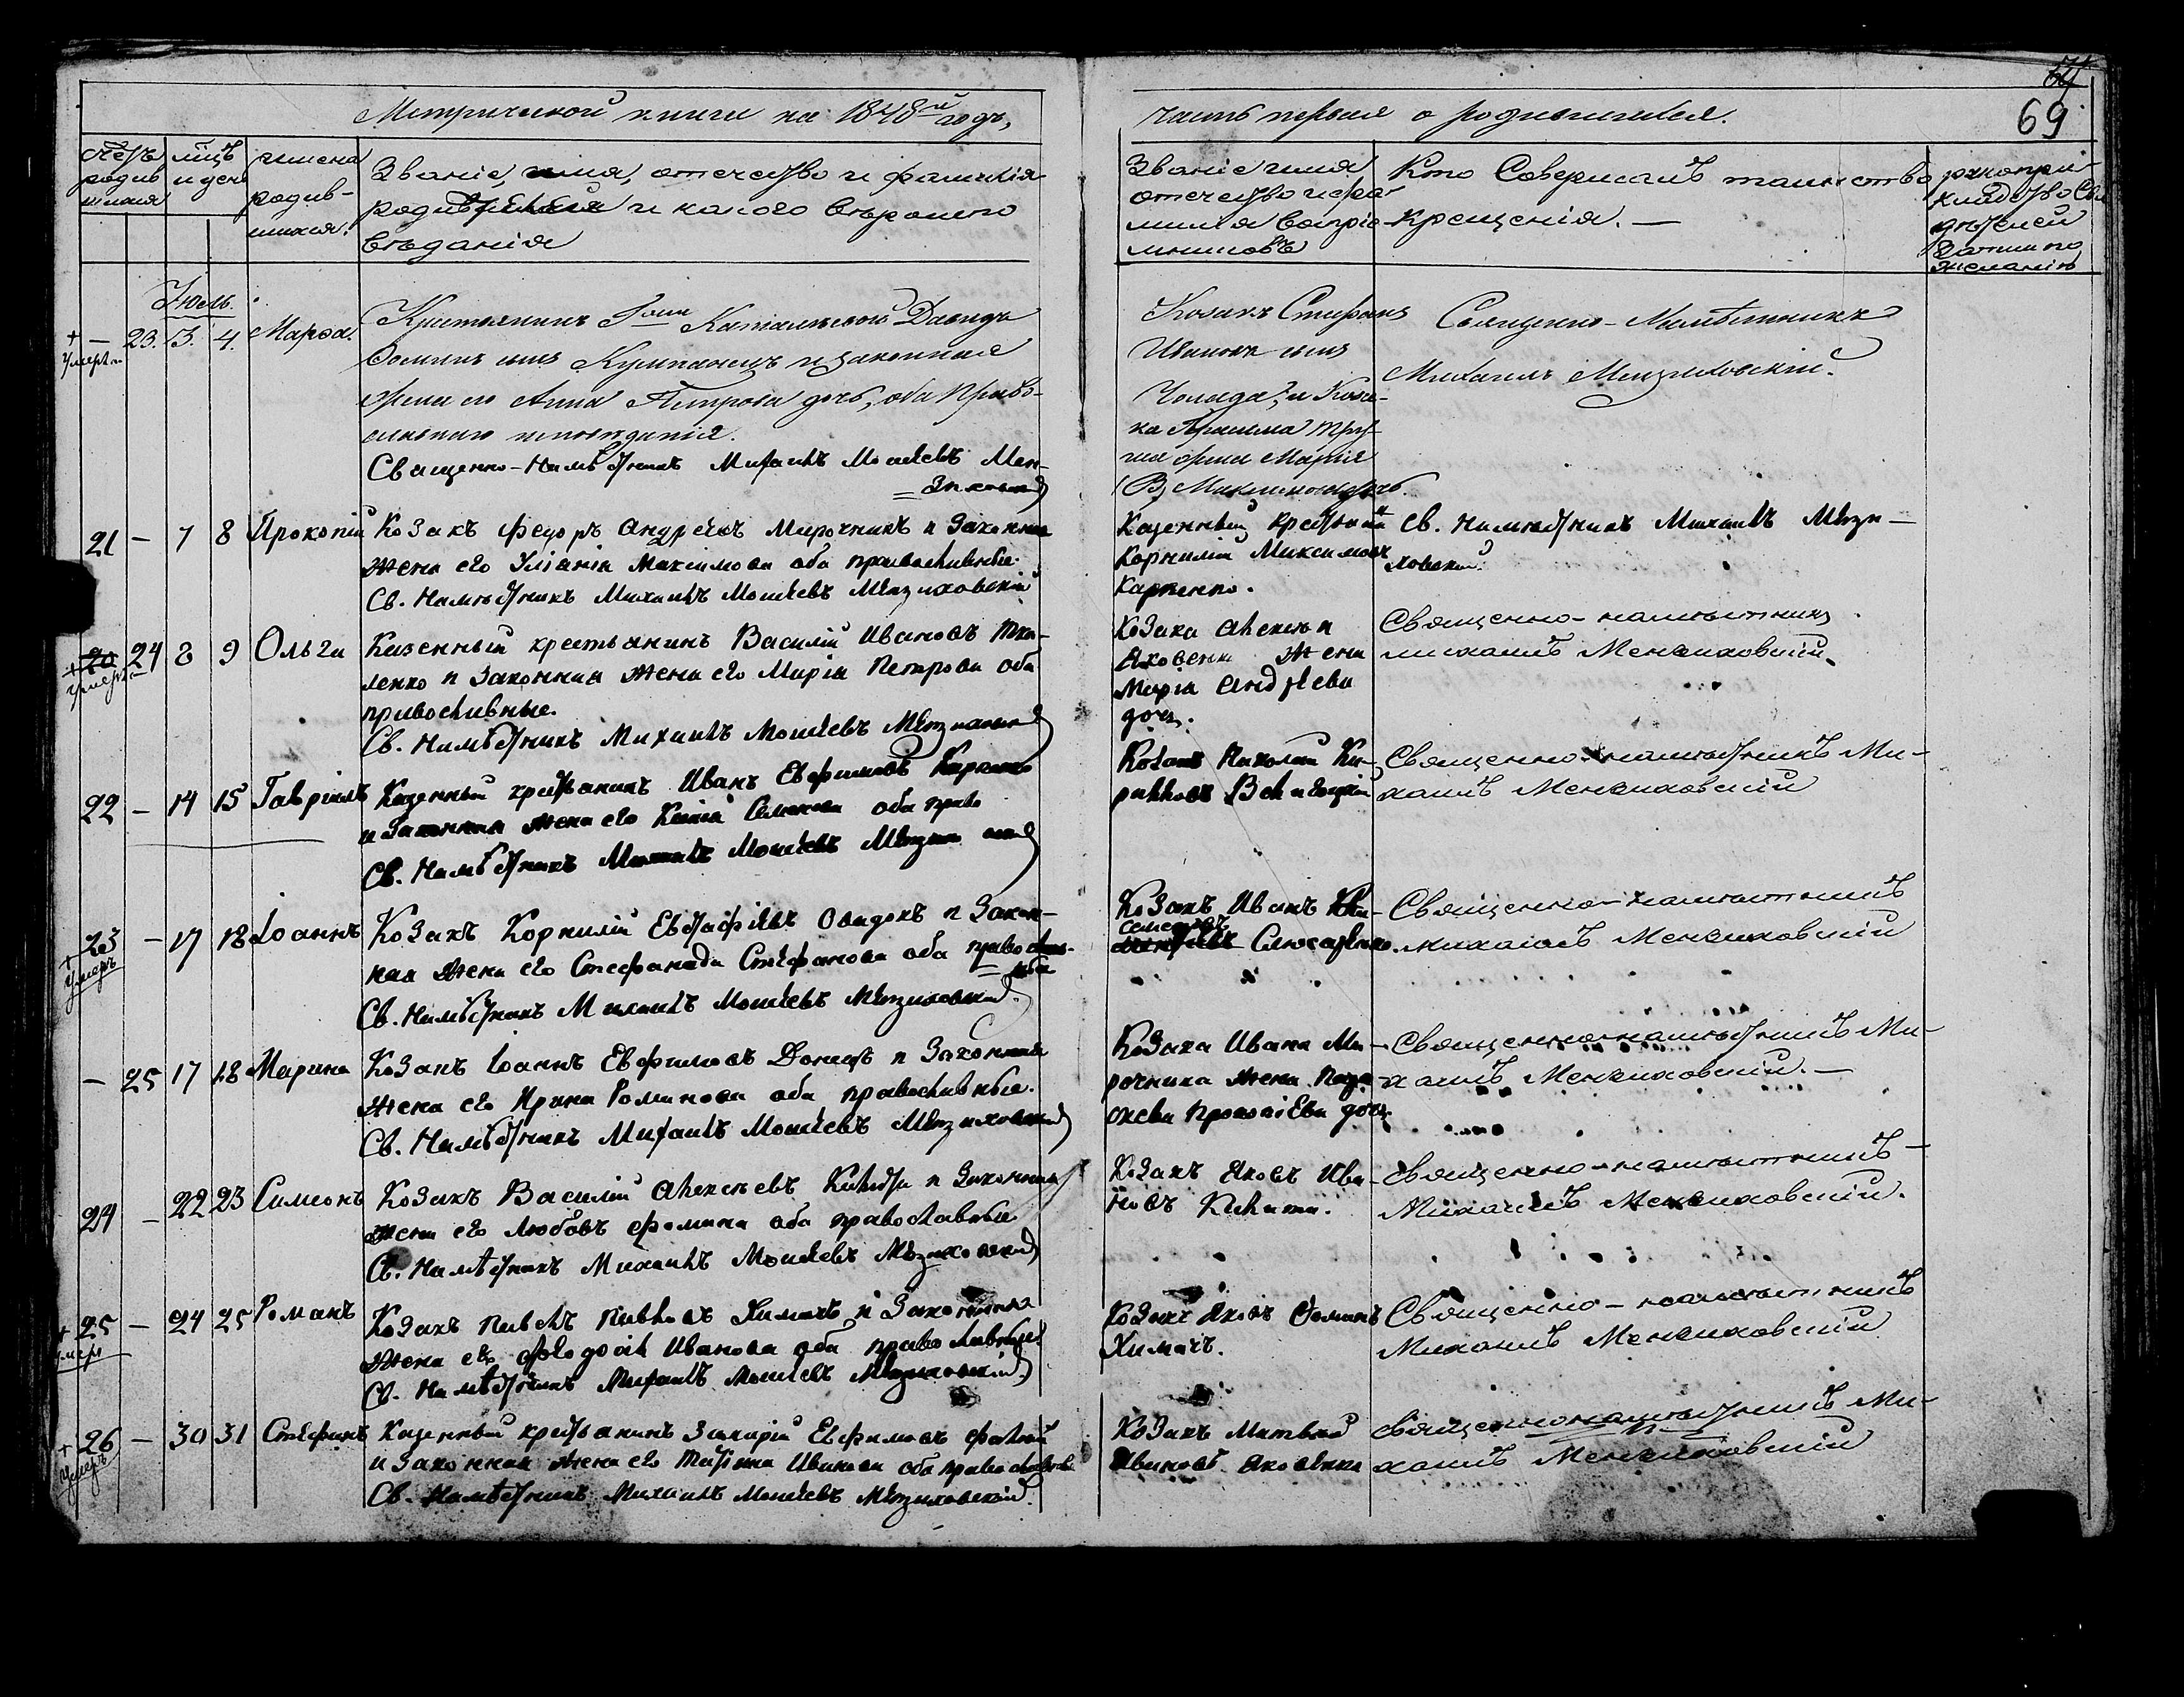 Метрической книги на 1848й годъ,
часть первая о родившихся.
69
Счетъ родив шихся
мѣсяцъ и день
имена родив- шихся.
Званіе, имя, отечество и фамилія
родителей и какого вѣроиспо
вѣданія
Званіе имя
отечество и фа
милія воспріе
мниковъ
Кто Совершалъ таинство
крещенія. —
рукопри
кладство Сви
дѣтелей
записи по
желанію
Іюль.
+ умерла — 23. 3. 4. Марѳа.
Крестьянинъ Давидъ
Ѳоминъ сынъ и законная
жена его Анна Петрова дочь, оба Право-
славнаго исповѣданія.
Священно-Намѣстникъ Михаилъ Моисеевъ Мен-
Козакъ Стефанъ
Ивановъ сынъ
жена Марія
Священно-Намѣстникъ
Михаилъ
21 — 7 8 Прокопій
Козакъ Федоръ Андреевъ Мирочникъ и Законная
жена его Уліанія Максимова оба православные.
Св. Намѣстникъ Михаилъ Моисеевъ Мензиховскій
Казенный крестьянинъ
Корнилій Максимовъ
Карпенко.
Св. Намѣстникъ Михаилъ Мензи-
ховскій.
+ умерла 20 24 8 9 Ольга
Казенный крестьянинъ Василій Ивановъ Тка-
ленко и Законная жена его Марія Петрова оба
православные.
Св. Намѣстникъ Михаилъ Моисеевъ Мензиховскій
Козака Алексѣя
Яковенка жена
Марія Андреева
дочь.
Священно-намѣстникъ
михаилъ Мензиховскій.
22 — 14 15 Гавріилъ
Казенный крестьянинъ Иванъ Евфимовъ Карпенко
и Законная жена его Семенова оба право
Св. Намѣстникъ Михаилъ Моисеевъ
Козакъ Николай Ки-
рилловъ
Священно-намѣстникъ Ми-
хаилъ Мензиховскій
+ умеръ 23 — 17 18 Іоаннъ
Козакъ Корнилій Евстафіевъ и Закон-
ная жена его Стефанида Стефанова оба православ-
ные
Св. Намѣстникъ Михаилъ Моисеевъ Мензиховскій.
Козакъ Иванъ
Семеновъ
Слюсаренко.
Священно-намѣстникъ
михаилъ Мензиховскій
— 25 17 18 Марина
Козакъ Іоаннъ Евфимовъ Донецъ и Законная
жена его Ирина Романова оба православные.
Св. Намѣстникъ Михаилъ Моисеевъ Мензиховскій
Козака Ивана Ми-
рочника жена Пара-
скева Прокопіева дочь.
Священно-намѣстникъ Ми-
хаилъ Мензиховскій. —
24 — 22 23 Симеонъ
Козакъ Василій Алексѣевъ и Законная
жена его Любовь Фомина оба православные
Св. Намѣстникъ Михаилъ Моисеевъ Мензиховскій
Козакъ Яковъ Ива-
новъ
Священно-намѣстникъ
Михаилъ Мензиховскій.
+ умеръ 25 — 24 25 Романъ
Козакъ Павелъ Павловъ Химичъ и Законная
жена его Иванова оба православные.
Св. Намѣстникъ Михаилъ Моисеевъ Мензиховскій
Козакъ Яковъ Ѳоминъ
Химичъ.
Священно-намѣстникъ
Михаилъ Мензиховскій
+ умеръ 26 — 30 31 Стефанъ
Казенный крестьянинъ Захарій Евфимовъ
и Законная жена его Татіана Иванова оба православные
Св. Намѣстникъ Михаилъ Моисеевъ Мензиховскій.
Козакъ Матвей
Ивановъ Яковенко
Священнонамѣстникъ Ми-
хаилъ Мензиховскій